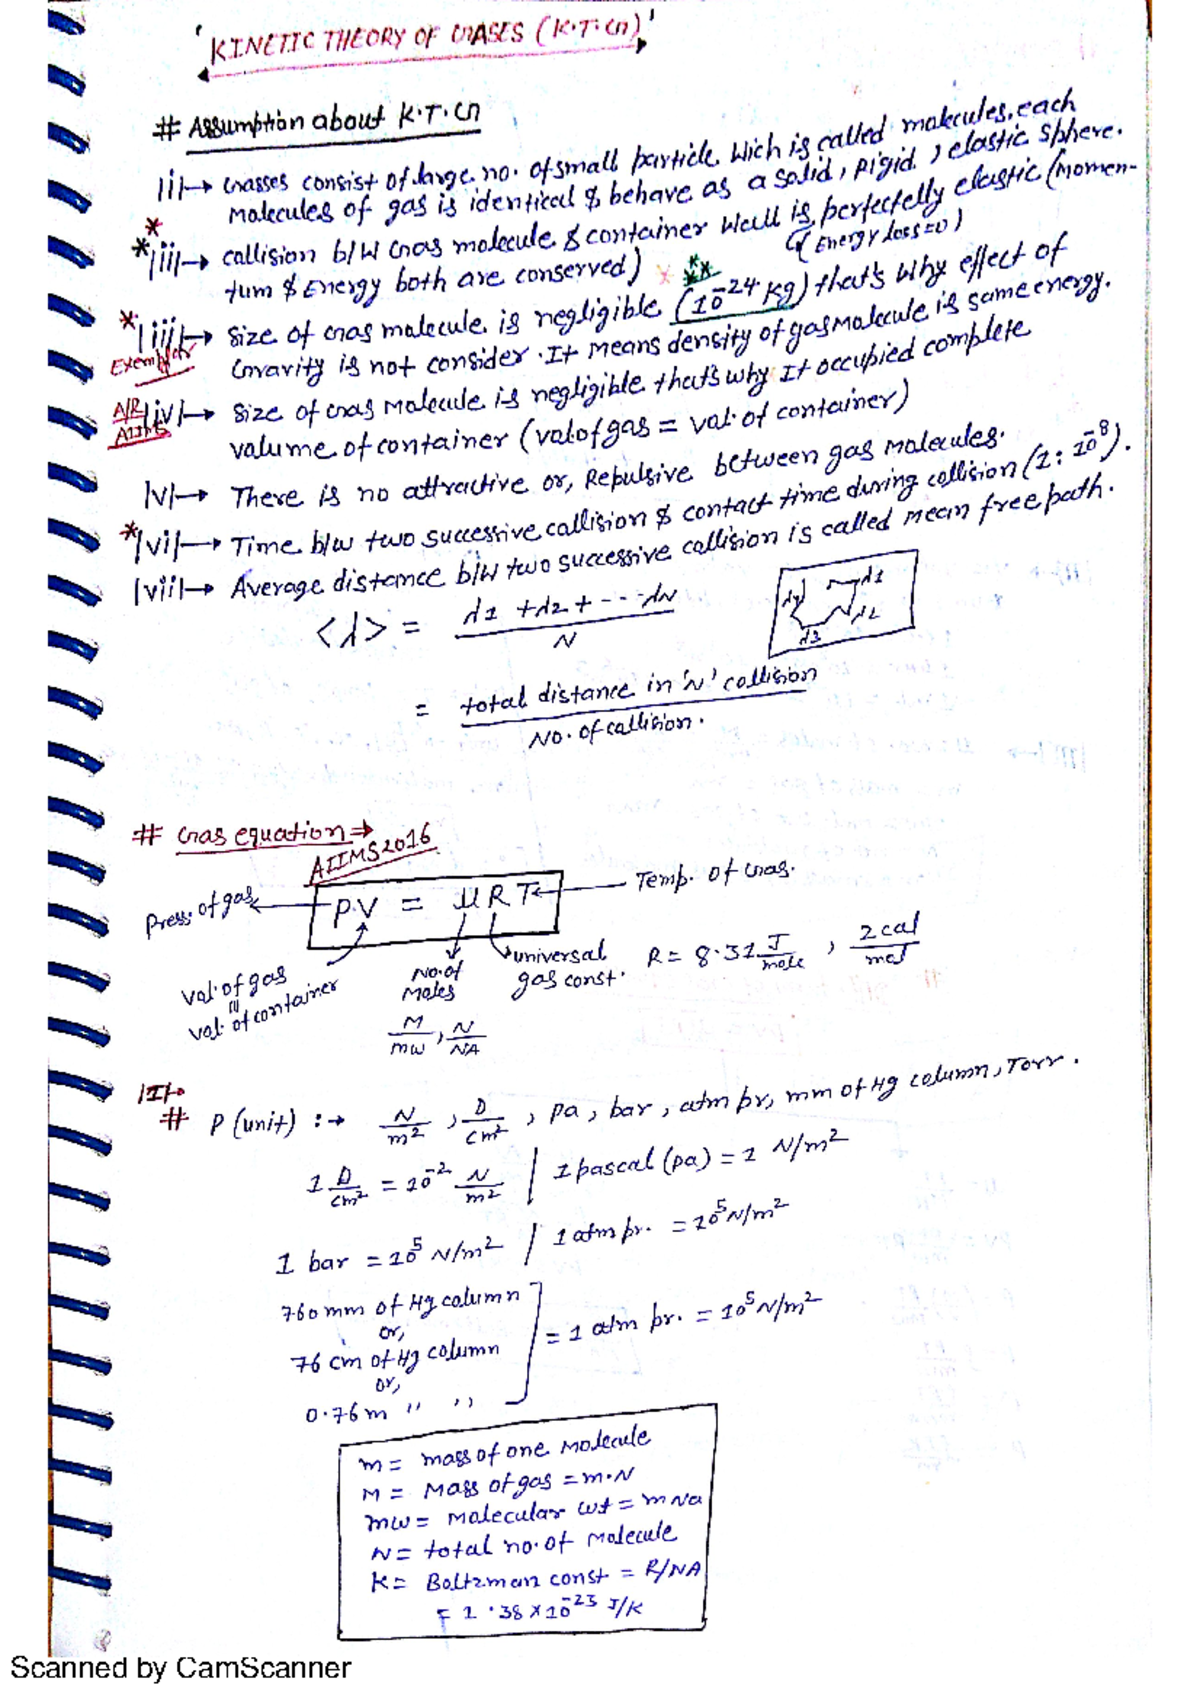 'KINETIC THEORY OF GASES (K.T.G)'
# Assumption about K.T.G
|i|→ Gasses consist of large no. of small particle Wich is called molecules, each
molecules of gas is identical & behave as a solid, rigid, elastic sphere.
* *|ii|→ collision b/w Gas molecule & container wall is perfectelly elastic (momen-
tum & Energy both are conserved) (Energy loss=0)
*|iii|→ Size of Gas molecule is negligible (10^-24 kg) that's why effect of
Exempler Gravity is not consider. It means density of gas Molecule is same energy.
A/R AIIMS |iv|→ Size of Gas Molecule is negligible that's why It occupied complete
volume of container (vol of gas = vol. of container)
|v|→ There is no attractive or, Repulsive between gas molecules.
*|vi|→ Time b/w two successive collision & contact time during collision (1: 10^-8).
|vii|→ Average distance b/w two successive collision is called mean free path.
<λ> = λ1 + λ2 + --- λN / N
λ1 λ2 λ3 λ4
= total distance in 'N' collision / No. of collision.
# Gas equation ⇒
AIIMS 2016
Press. of gas ← P.V = μ R T ← Temp. of Gas.
vol. of gas
vol. of container
No. of Moles
M/mw, N/NA
universal gas const.
R = 8.31 J/mole, 2 cal/mol
|I|→
# P (unit) :→ N/m², D/cm², pa, bar, atm pr, mm of Hg column, Torr.
1 D/cm² = 10^-2 N/m² / 1 pascal (pa) = 1 N/m²
1 bar = 10^5 N/m² / 1 atm pr. = 10^5 N/m²
760 mm of Hg column
or,
76 cm of Hg column = 1 atm pr. = 10^5 N/m²
or,
0.76 m '' ''
m = mass of one Molecule
M = Mass of gas = m.N
mw = molecular wt = m Na
N = total no. of Molecule
K = Boltzman const = R/NA
= 1.38 x 10^-23 J/K
Scanned by CamScanner